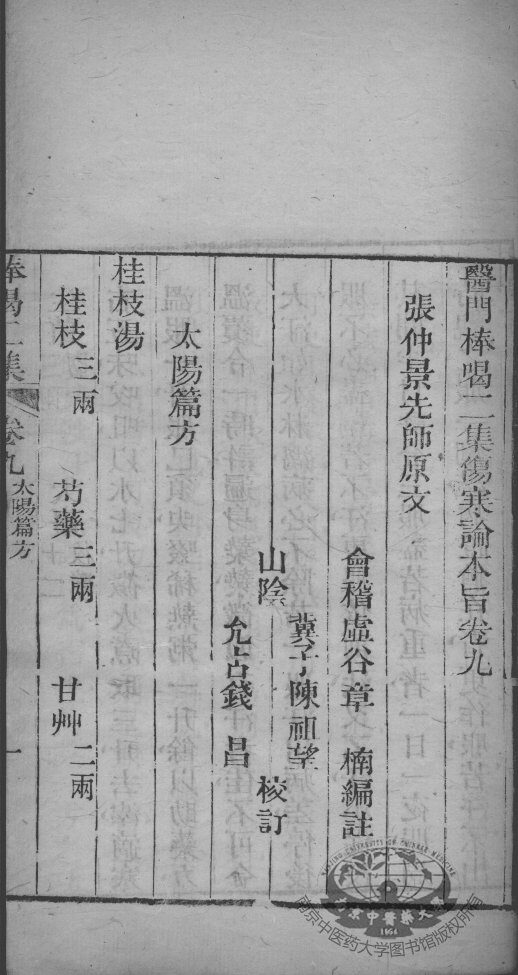 醫門棒喝二集傷寒論本旨卷九
張仲景先師原文
會稽虛谷章 楠編註
山陰 冀子陳祖望 校訂
允占錢 昌
太陽篇方
桂枝湯
桂枝三兩 芍藥三兩 甘艸二兩
棒喝二集 卷九 太陽篇方 一
南京中医药大学图书馆版权所有
NANJING UNIVERSITY OF CHINESE MEDICINE
南京中醫藥大學
1954